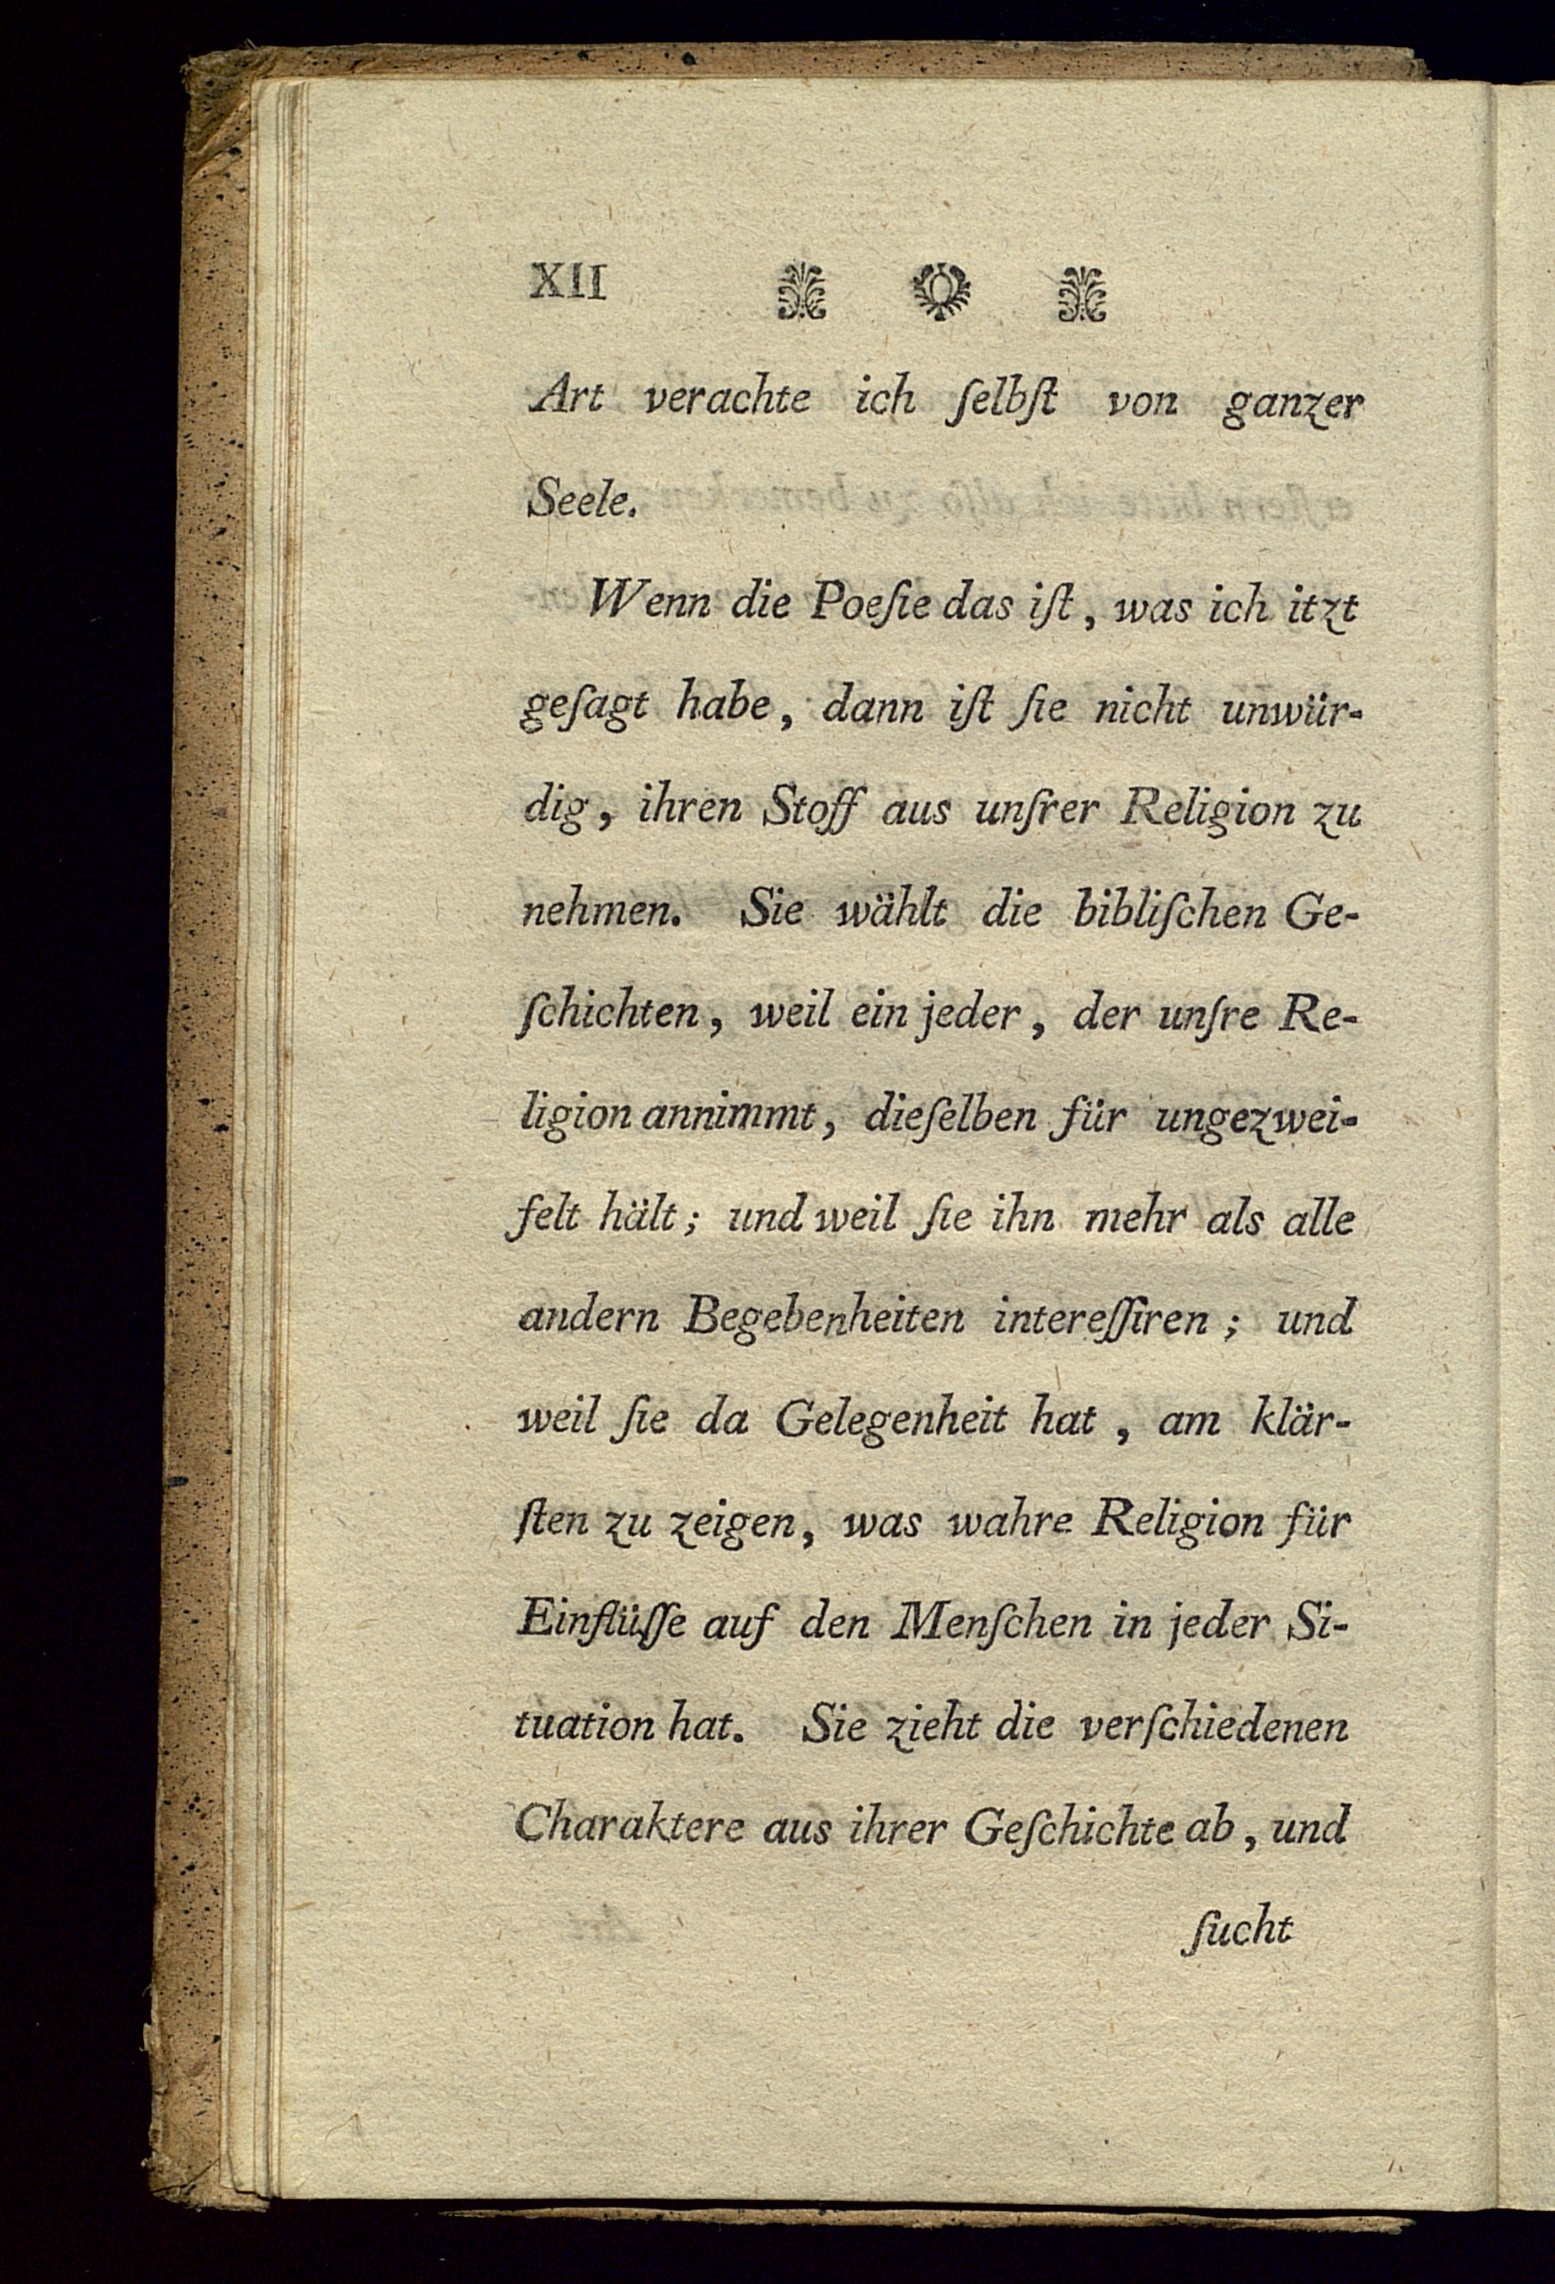 XII
Art verachte ich ſelbſt von ganzer
Seele.
Wenn die Poeſie das iſt, was ich itzt
geſagt habe, dann iſt ſie nicht unwür-
dig, ihren Stoff aus unſrer Religion zu
nehmen. Sie wählt die bibliſchen Ge-
ſchichten, weil ein jeder, der unſre Re-
ligion annimmt, dieſelben für ungezwei-
felt hält; und weil ſie ihn mehr als alle
andern Begebenheiten intereſſiren; und
weil ſie da Gelegenheit hat, am klär-
ſten zu zeigen, was wahre Religion für
Einflüſſe auf den Menſchen in jeder Si-
tuation hat. Sie zieht die verſchiedenen
Charaktere aus ihrer Geſchichte ab, und
ſucht